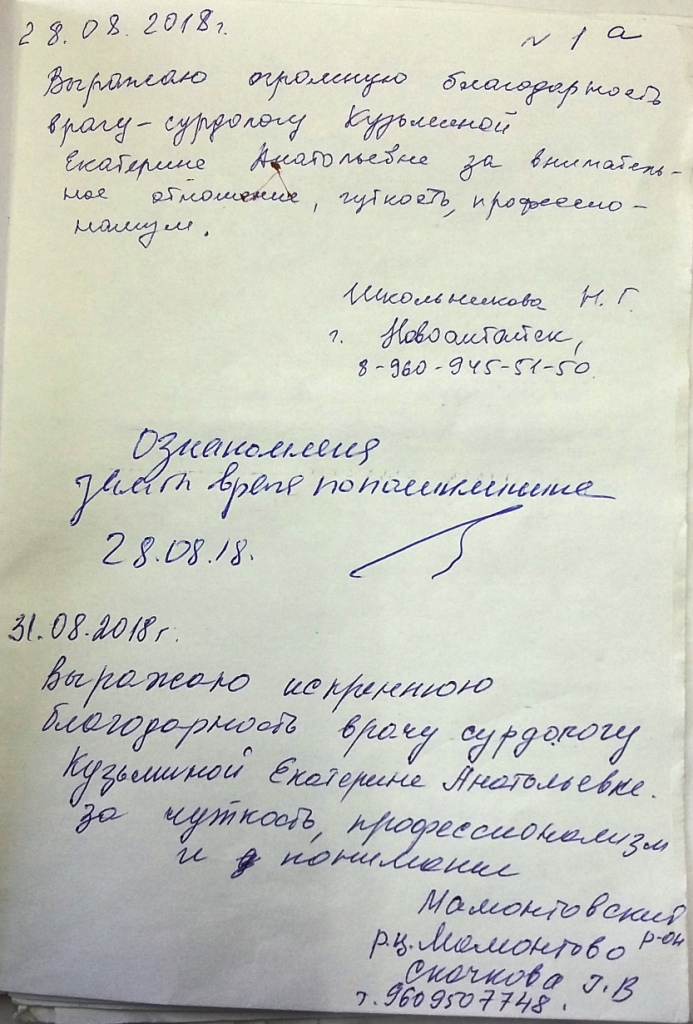 28.08.2018г. № 1 а
Выражаю огромную благодарность
врачу-сурдологу Кузьминой
Екатерине Анатольевне за вниматель-
ное отношение, чуткость, профессио-
нализм.
Школьникова Н. Г.
г. Новоалтайск,
8-960-945-51-50.
Ознакомлена
28.08.18.
31.08.2018г.
Выражаю искреннюю
благодарность врачу сурдологу
Кузьминой Екатерине Анатольевне.
за чуткость, профессионализм
и понимание
Мамонтовский
р-он
р.ц. Мамонтово
Скачкова Г.В
т. 9609507748.